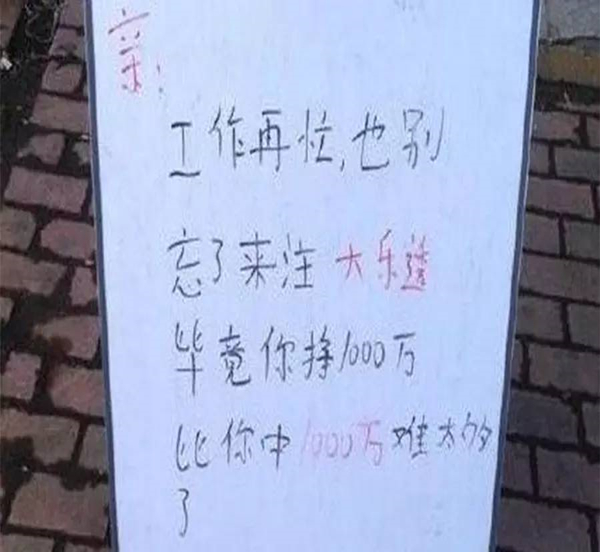 亲:
工作再忙,也别
忘了来注大乐透
毕竟你挣1000万
比你中1000万难太多
了